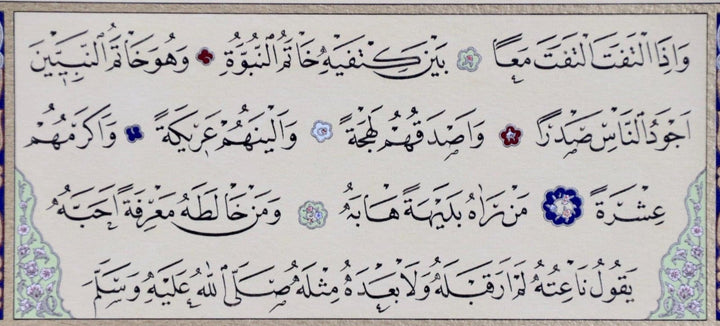 وَاِذَا الْتَفَتَ الْتَفَتَ مَعًا بَيْنَ كَتِفَيْهِ خَاتَمُ النُّبُوَّةِ وَهُوَ خَاتَمُ النَّبِيّينَ
اَجْوَدُ النَّاسِ صَدْرًا وَاَصْدَقُهُمْ لَهْجَةً وَاَلْيَنُهُمْ عَرِيكَةً وَاَكْرَمُهُمْ
عِشْرَةً مَنْ رَاٰهُ بَدِيهَةً هَابَهُ وَمَنْ خَالَطَهُ مَعْرِفَةً اَحَبَّهُ
يَقُولُ نَاعِتُهُ لَمْ اَرَ قَبْلَهُ وَلَا بَعْدَهُ مِثْلَهُ صَلَّى اللّٰهُ عَلَيْهِ وَسَلَّمَ